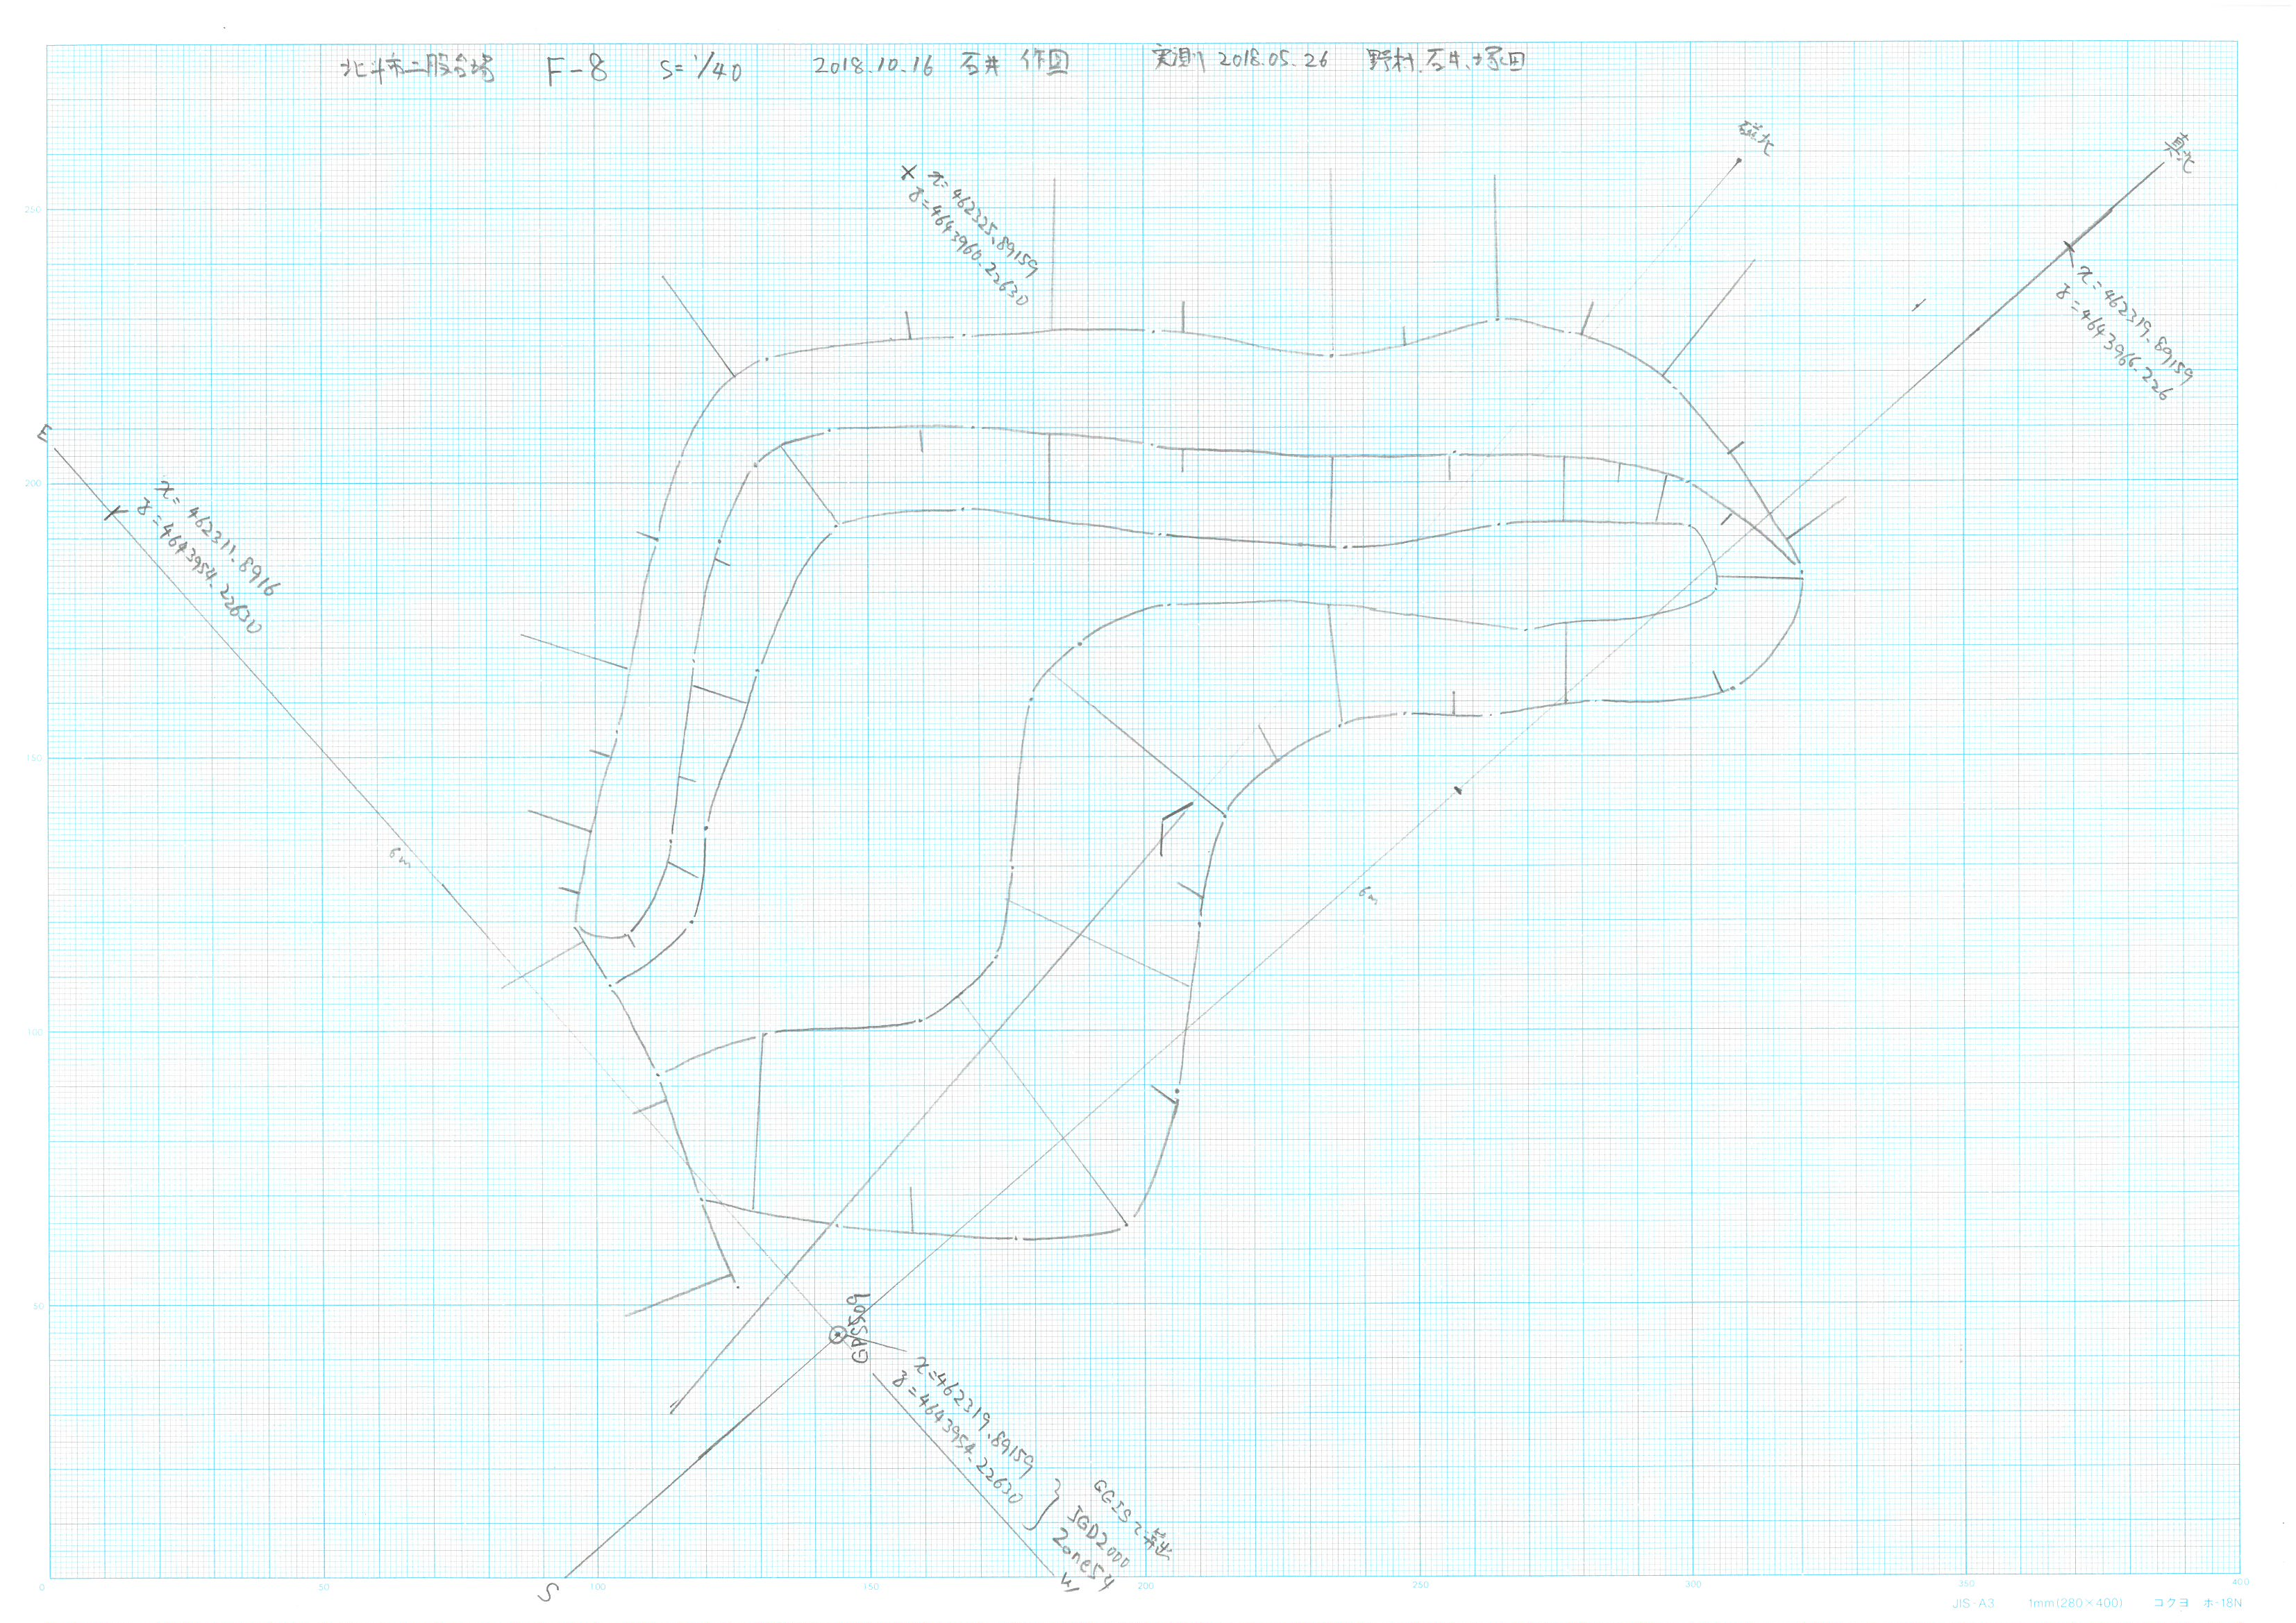 北斗市二股台場 F-8 S=1/40 2018.10.16 石井 作図 実測 2018.05.26 野村、石井、塚田
磁北
真北
x=462325.89159
y=4643960.22630
x=462319.89159
y=4643966.226
E
x=462311.8916
y=4643954.22630
6m
6m
GAS509
x=462319.89159
y=4643954.22630
QGISで算出
JGD2000
Zone54
S
W
250
200
150
100
50
0
50
100
150
200
250
300
350
400
JIS-A3 1mm(280×400) コクヨ ホ-18N